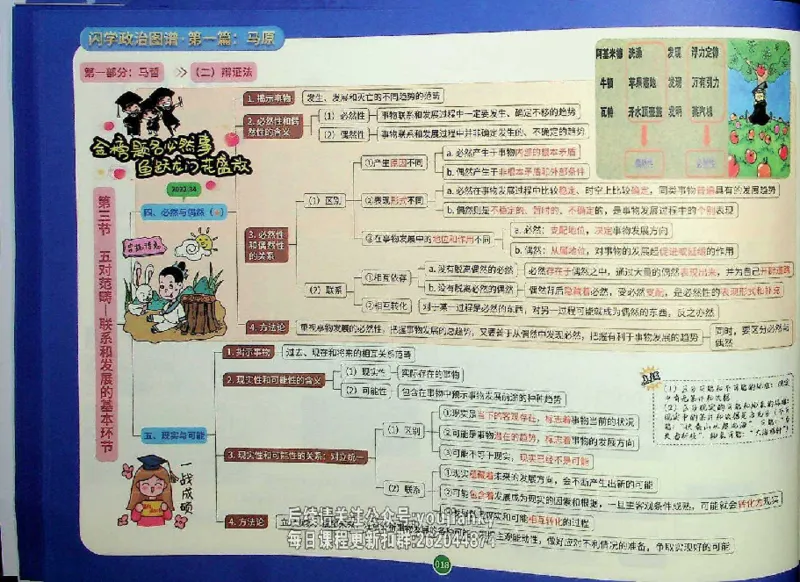 闪学政治图谱·第一篇：马原
第一部分：马哲
（二）辩证法
阿基米德 洗澡 发现 浮力定律
牛顿 苹果落地 发现 万有引力
瓦特 开水顶壶盖 发明 蒸汽机
偶然性 必然性
金榜题名必然事
鱼跃龙门花盛放
第三节 五对范畴—联系和发展的基本环节
2022.34
四、必然与偶然
守株待兔
1. 揭示事物
发生、发展和灭亡的不同趋势的范畴
2. 必然性和偶然性的含义
（1）必然性
事物联系和发展过程中一定要发生、确定不移的趋势
（2）偶然性
事物联系和发展过程中并非确定发生的、不确定的趋势
3. 必然性和偶然性的关系
（1）区别
①产生原因不同
a. 必然产生于事物内部的根本矛盾
b. 偶然产生于非根本矛盾和外部条件
②表现形式不同
a. 必然在事物发展过程中比较稳定、时空上比较确定，同类事物普遍具有的发展趋势
b. 偶然则是不稳定的、暂时的、不确定的，是事物发展过程中的个别表现
③在事物发展中的地位和作用不同
a. 必然：支配地位，决定事物发展方向
b. 偶然：从属地位，对事物的发展起促进或延缓的作用
（2）联系
①相互依存
a. 没有脱离偶然的必然
必然存在于偶然之中，通过大量的偶然表现出来，并为自己开辟道路
b. 没有脱离必然的偶然
偶然背后隐藏着必然，受必然支配，是必然性的表现形式和补充
②相互转化
对于某一过程是必然的东西，对另一过程可能就成为偶然的东西，反之亦然
4. 方法论
重视事物发展的必然性，把握事物发展的总趋势，又要善于从偶然中发现必然，把握有利于事物发展的趋势
同时，要区分必然与偶然
五、现实与可能
一战成硕
1. 揭示事物
过去、现在和将来的相互关系范畴
2. 现实性和可能性的含义
（1）现实性
实际存在的事物
（2）可能性
包含在事物中预示事物发展前途的种种趋势
3. 现实性和可能性的关系：对立统一
（1）区别
①现实是当下的客观存在，标志着事物当前的状况
②可能是事物潜在的趋势，标志着事物的发展方向
③可能不等于现实，现实已经不是可能
（2）联系
①现实蕴藏着未来的发展方向，会不断产生出新的可能
②可能包含着发展成为现实的因素和根据，一旦主客观条件成熟，可能就会转化为现实
相互转化的过程
4. 方法论
主观能动性，做好应对不利情况的准备，争取实现好的可能
后续请关注公众号:youjianky
每日课程更新扣群:262044874
018